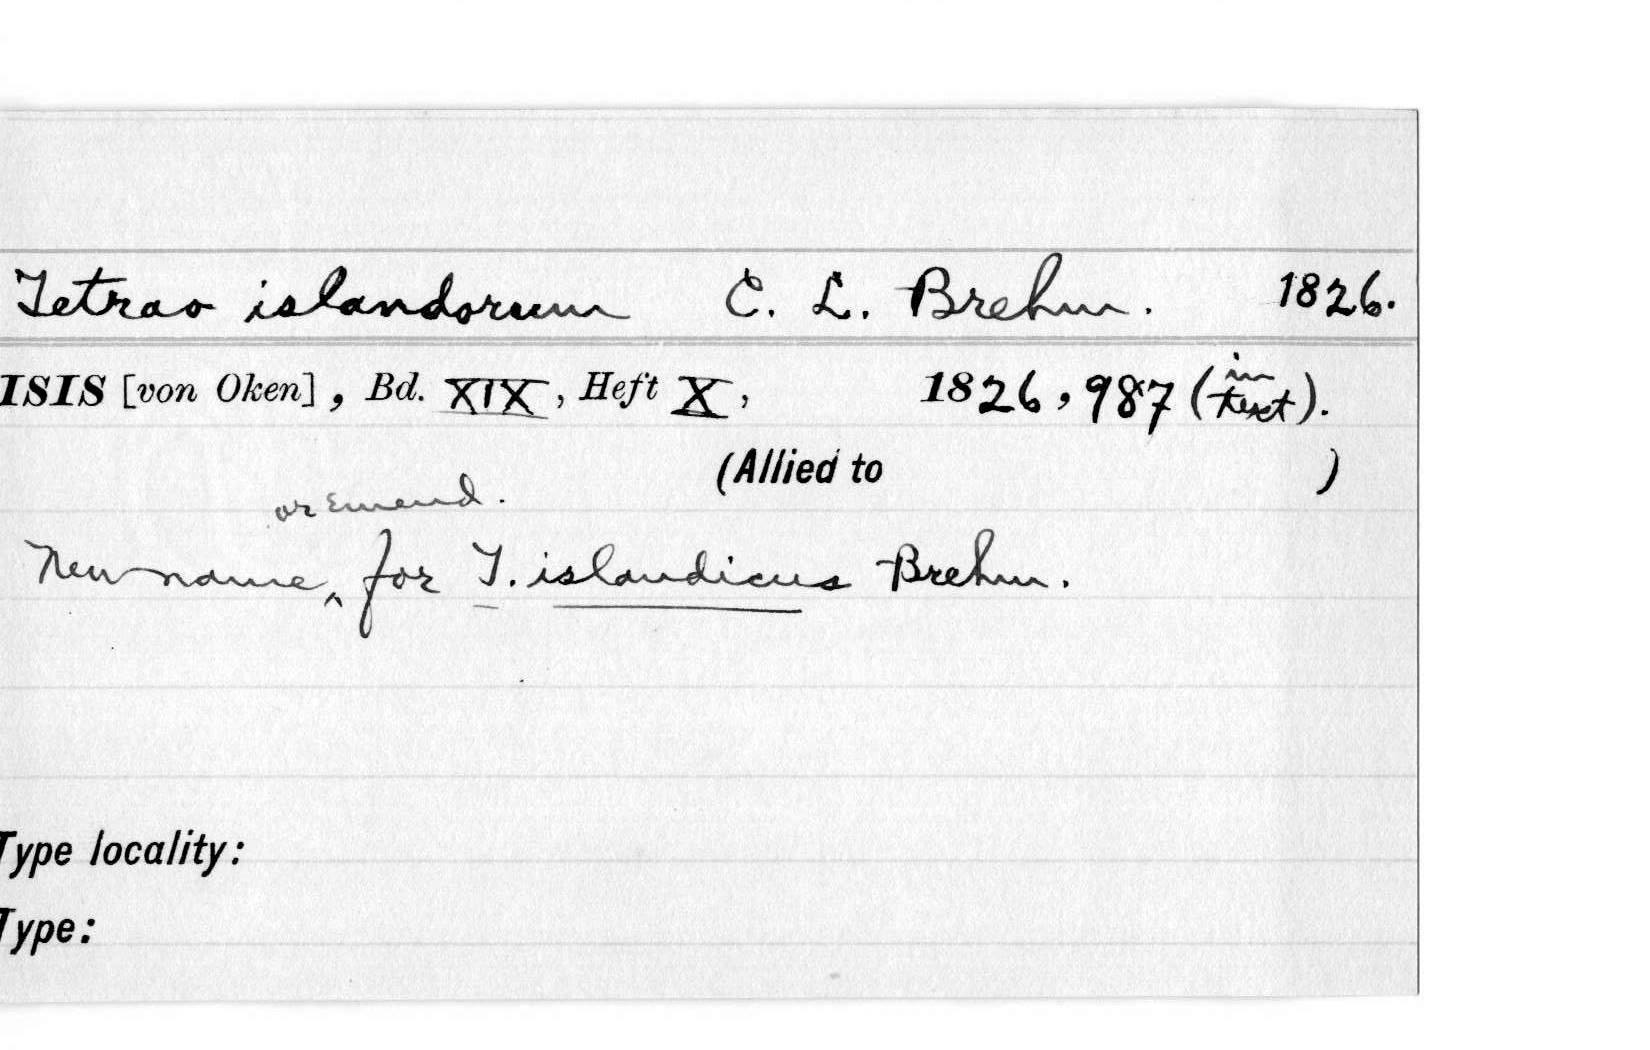 Tetrao islandorum C. L. Brehm. 1826.
ISIS [von Oken], Bd. XIX, Heft X, 1826, 987 (in text).
(Allied to )
or emend.
New name ‸ for T. islandicus Brehm.
Type locality:
Type: